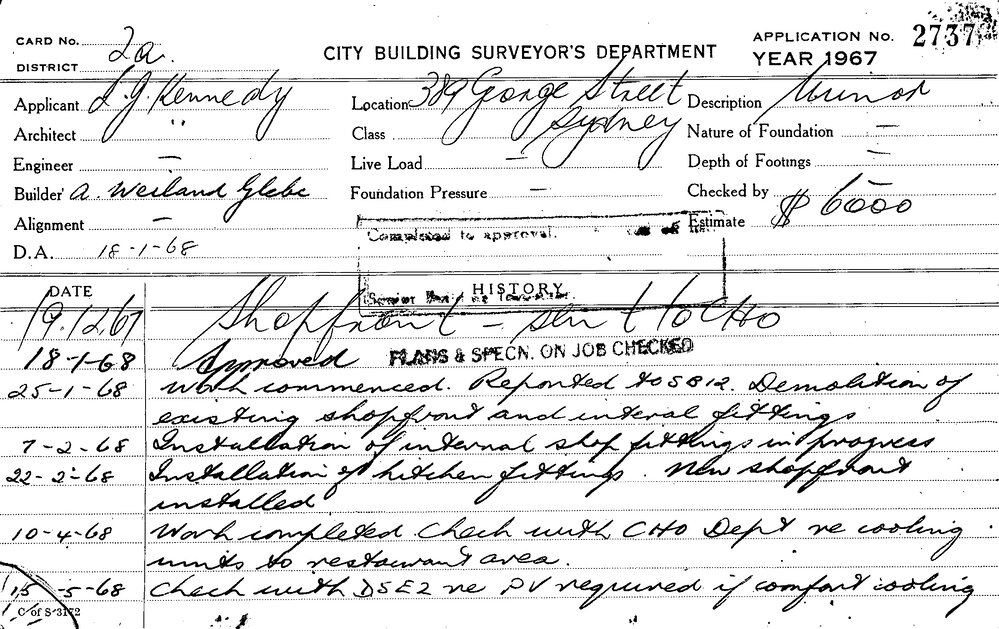 CARD No. 2a
DISTRICT
CITY BUILDING SURVEYOR'S DEPARTMENT
APPLICATION No. 2737
YEAR 1967
Applicant L. J. Kennedy
Location 389 George Street
Sydney
Description Minor
Architect "
Class
Nature of Foundation —
Engineer —
Live Load —
Depth of Footings —
Builder A. Weiland Glebe
Foundation Pressure —
Checked by —
Alignment —
Estimate $6000
D.A. 18-1-68
Completed to approval.
HISTORY
DATE
19.12.67 Shopfront — sent to CHO
18-1-68 Approved PLANS & SPECN. ON JOB CHECKED
25-1-68 Work commenced. Reported to SB12. Demolition of
existing shopfront and interal fittings
7-2-68 Installation of internal shop fittings in progress
22-2-68 Installation of kitchen fittings. New shopfront
installed
10-4-68 Work completed Check with CHO Dept re cooling
units to restaurant area.
15-5-68 Check with DSE2 re PV required if comfort cooling
C of S-3172